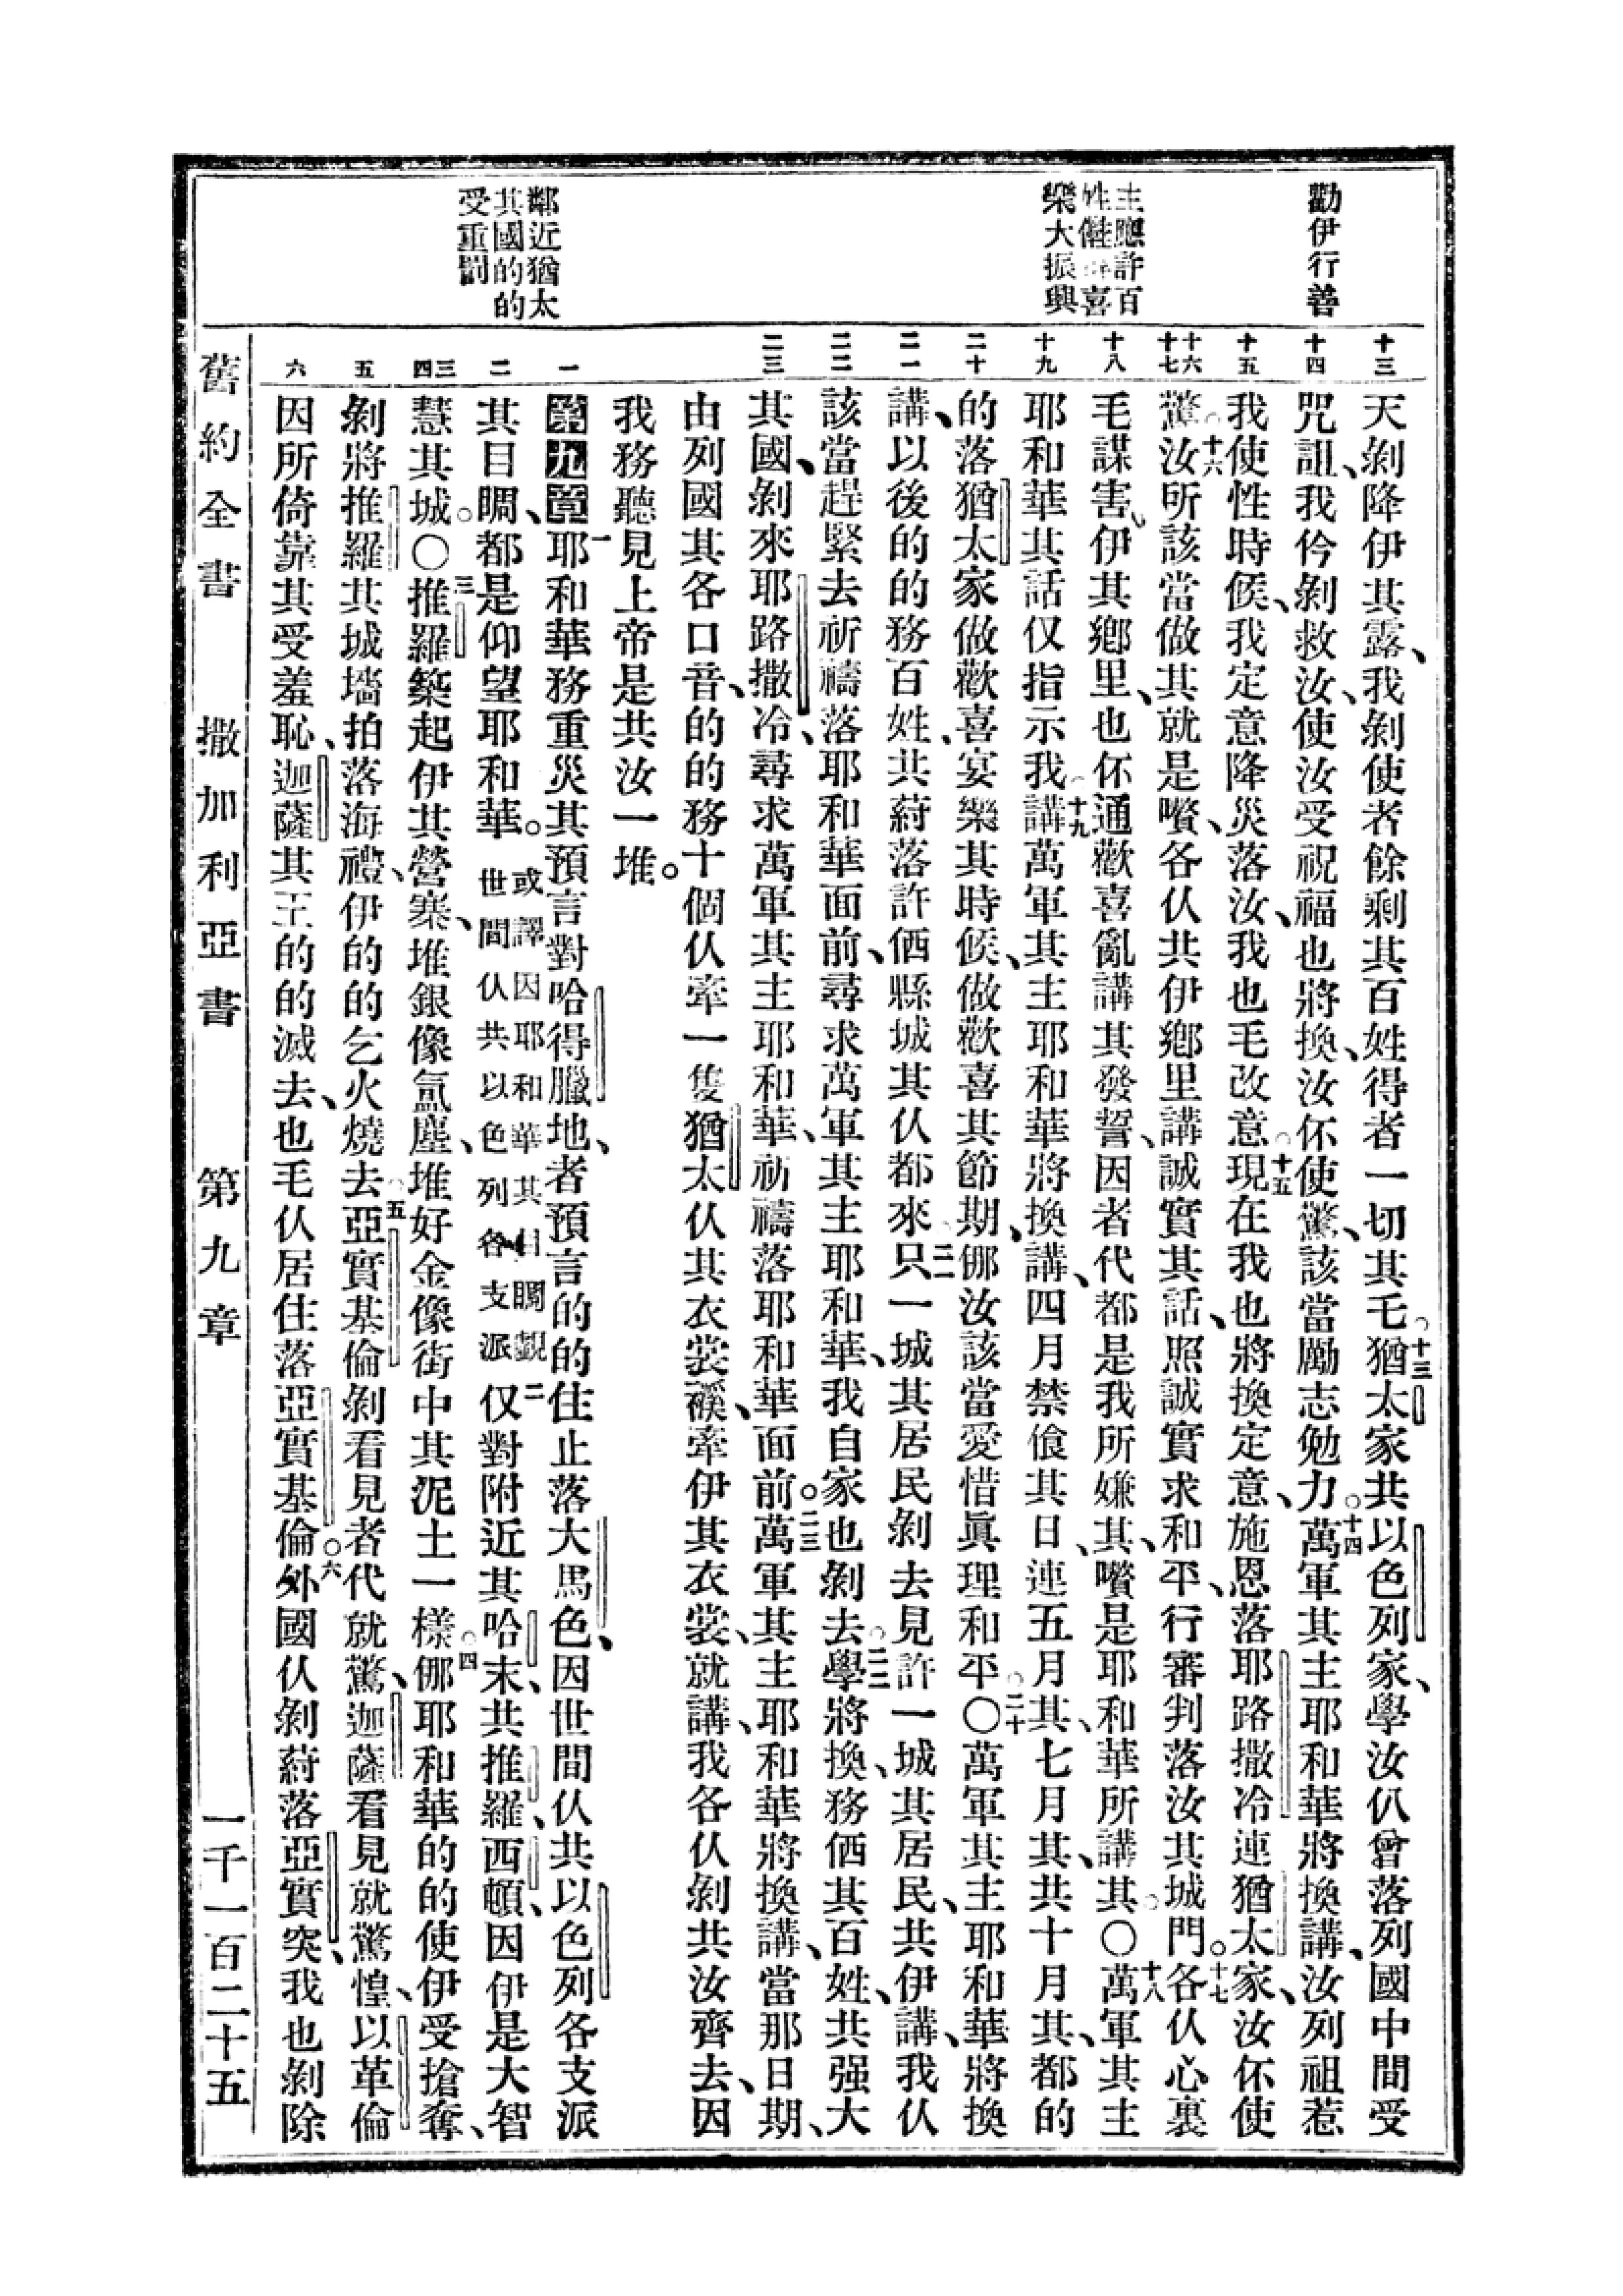 勸伊行善
主應許百
姓喜
樂大振興
鄰近猶太
其國的的
受重罰
十三
十四
十五
十六
十七
十八
十九
二十
二一
二二
二三
一
二
三
四
五
六
天剝降伊其露、我剝使者餘剩其百姓得者一切其乇○十三猶太家共以色列家、學汝仈曾落列國中間受
咒詛、我仱剝救汝、使汝受祝福也將換、汝伓使驚、該當勵志勉力○十四萬軍其主耶和華將換講、汝列祖惹
我使性時候、我定意降災落汝、我也毛改意○十五現在我也將換定意、施恩落耶路撒冷連猶太家、汝伓使
驚○十六汝所該當做其就是嚽、各仈共伊鄉里講誠實其話、照誠實求和平、行審判落汝其城門○十七各仈心裏
毛謀害伊其鄉里、也伓通歡喜亂講其發誓、因者代都是我所嫌其、嚽是耶和華所講其○〇十八萬軍其主
耶和華其話仅指示我○十九講萬軍其主耶和華將換講、四月禁飡其日、連五月其、七月其、共十月其、都的
的落猶太家做歡喜宴樂其時候、做歡喜其節期、挪汝該當愛惜眞理和平○二十〇萬軍其主耶和華將換
講、以後的的務百姓、共蔚落許㑚縣城其仈都來○二一只一城其居民剝去見許一城其居民、共伊講、我仈
該當趕緊去祈禱落耶和華面前、尋求萬軍其主耶和華、我自家也剝去○二二學將換、務㑚其百姓、共强大
其國、剝來耶路撒冷、尋求萬軍其主耶和華、祈禱落耶和華面前○二三萬軍其主耶和華將換講、當那日期、
由列國其各口音、的的務十個仈牽一隻猶太仈其衣裳襆、牽伊其衣裳、就講、我各仈剝共汝齊去、因
我務聽見上帝是共汝一堆。
第九章一耶和華務重災其預言對哈得臘地、者預言的的住止落大馬色、因世間仈共以色列各支派
其目睭、都是仰望耶和華。或譯因耶和華其目睭觀世間仈共以色列各支派二仅對附近其哈末、共推羅、西頓、因伊是大智
慧其城○〇三推羅築起伊其營寨、堆銀像氲塵、堆好金像街中其泥土一樣○四挪耶和華的的使伊受搶奪、
剝將推羅其城墻拍落海禮、伊的的乞火燒去○五亞實基倫剝看見者代就驚、迦薩看見就驚惶、以革倫
因所倚靠其受羞恥、迦薩其王的的滅去、也毛仈居住落亞實基倫○六外國仈剝蔚落亞實突、我也剝除
舊約全書　撒加利亞書　第九章　一千一百二十五